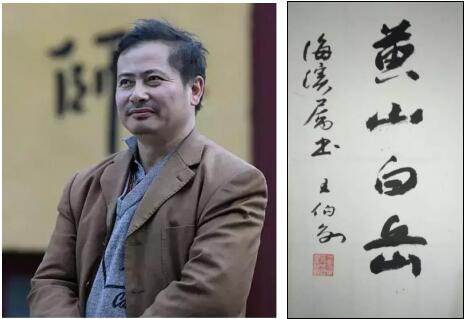 師
黄山白岳
海滨属书 王伯敏